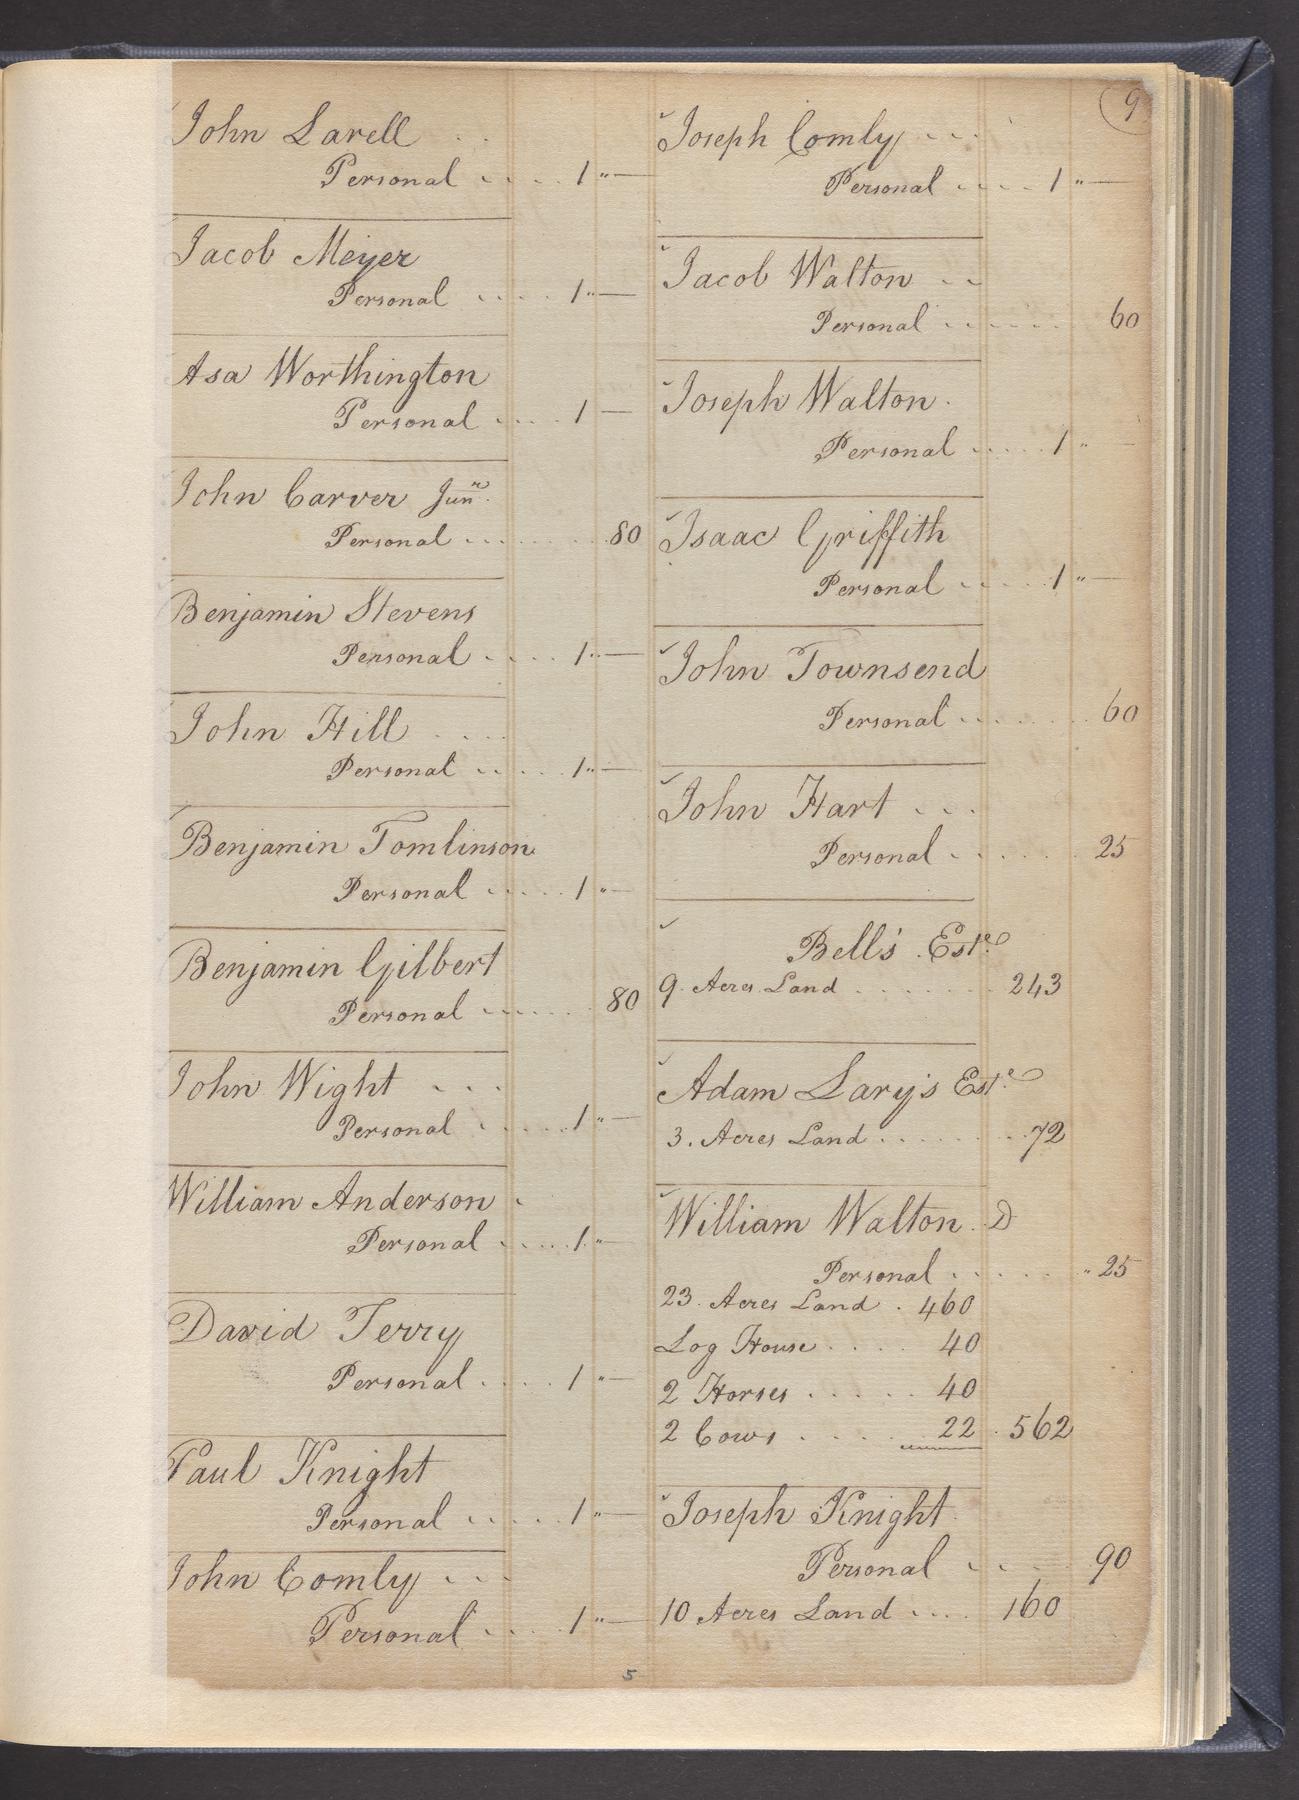 9
John Larell . .
Personal . . . . 1 " —
Jacob Meyer
Personal . . . . 1 " —
Asa Worthington
Personal . . . . 1 —
John Carver Junr.
Personal . . . . . . . 80
Benjamin Stevens
Personal . . . . 1 " —
John Hill . . . .
Personal . . . . 1 " —
Benjamin Tomlinson
Personal . . . . 1 " —
Benjamin Gilbert
Personal . . . . . . 80
John Wight . . .
Personal . . . . 1 " —
William Anderson .
Personal . . . . 1 " —
David Terry
Personal . . . . 1 " —
Paul Knight
Personal . . . . 1 " —
John Comly . . .
Personal . . . . 1 " —
Joseph Comly . . .
Personal . . . . 1 " —
Jacob Walton . .
Personal . . . . . . 60
Joseph Walton .
Personal . . . . . 1 " —
Isaac Griffith
Personal . . . . . 1 " —
John Townsend
Personal . . . . . . . 60
John Hart . . .
Personal . . . . . . 25
Bell's Este.
9 Acres Land . . . . . . . 243
Adam Lary's Este.
3. Acres Land . . . . . . . 72
William Walton . D
Personal . . . . . " 25
23 . Acres Land . 460
Log House . . . . 40
2 Horses . . . . . . 40
2 Cows . . . . . 22 . 562
Joseph Knight
Personal . . . . 90
10 Acres Land . . . . 160
5